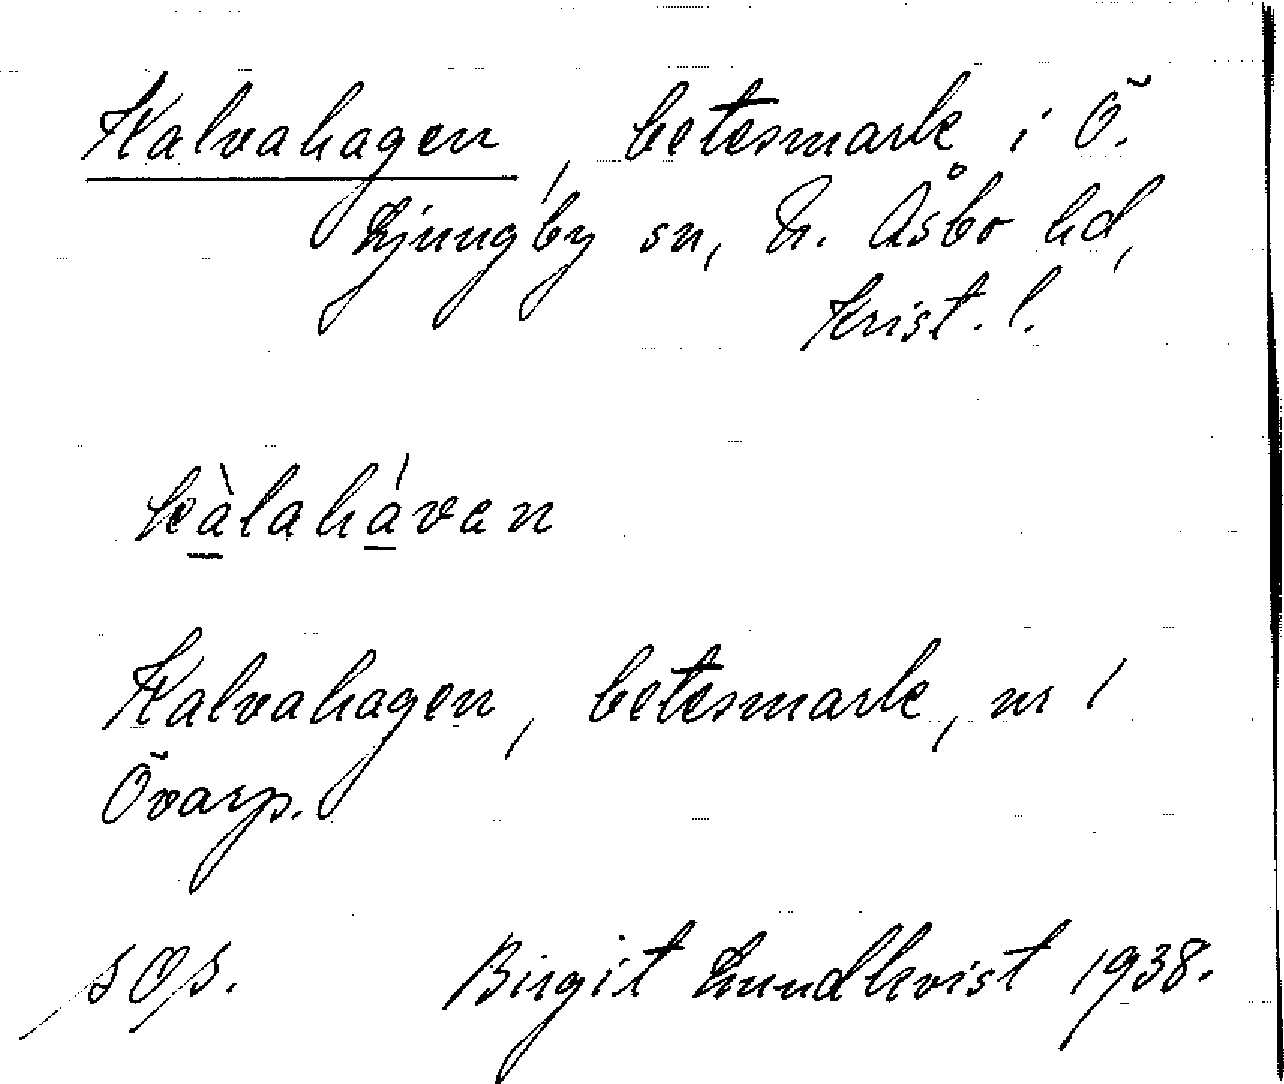 Kalvahagen, betesmark i Ö.
Ljungby sn, N. Åsbo hd,
Krist. l.
kàlahávan
Kalvahagen, betesmark, nr 1
Övarp.
sOs.    Birgit Lundkvist 1938.